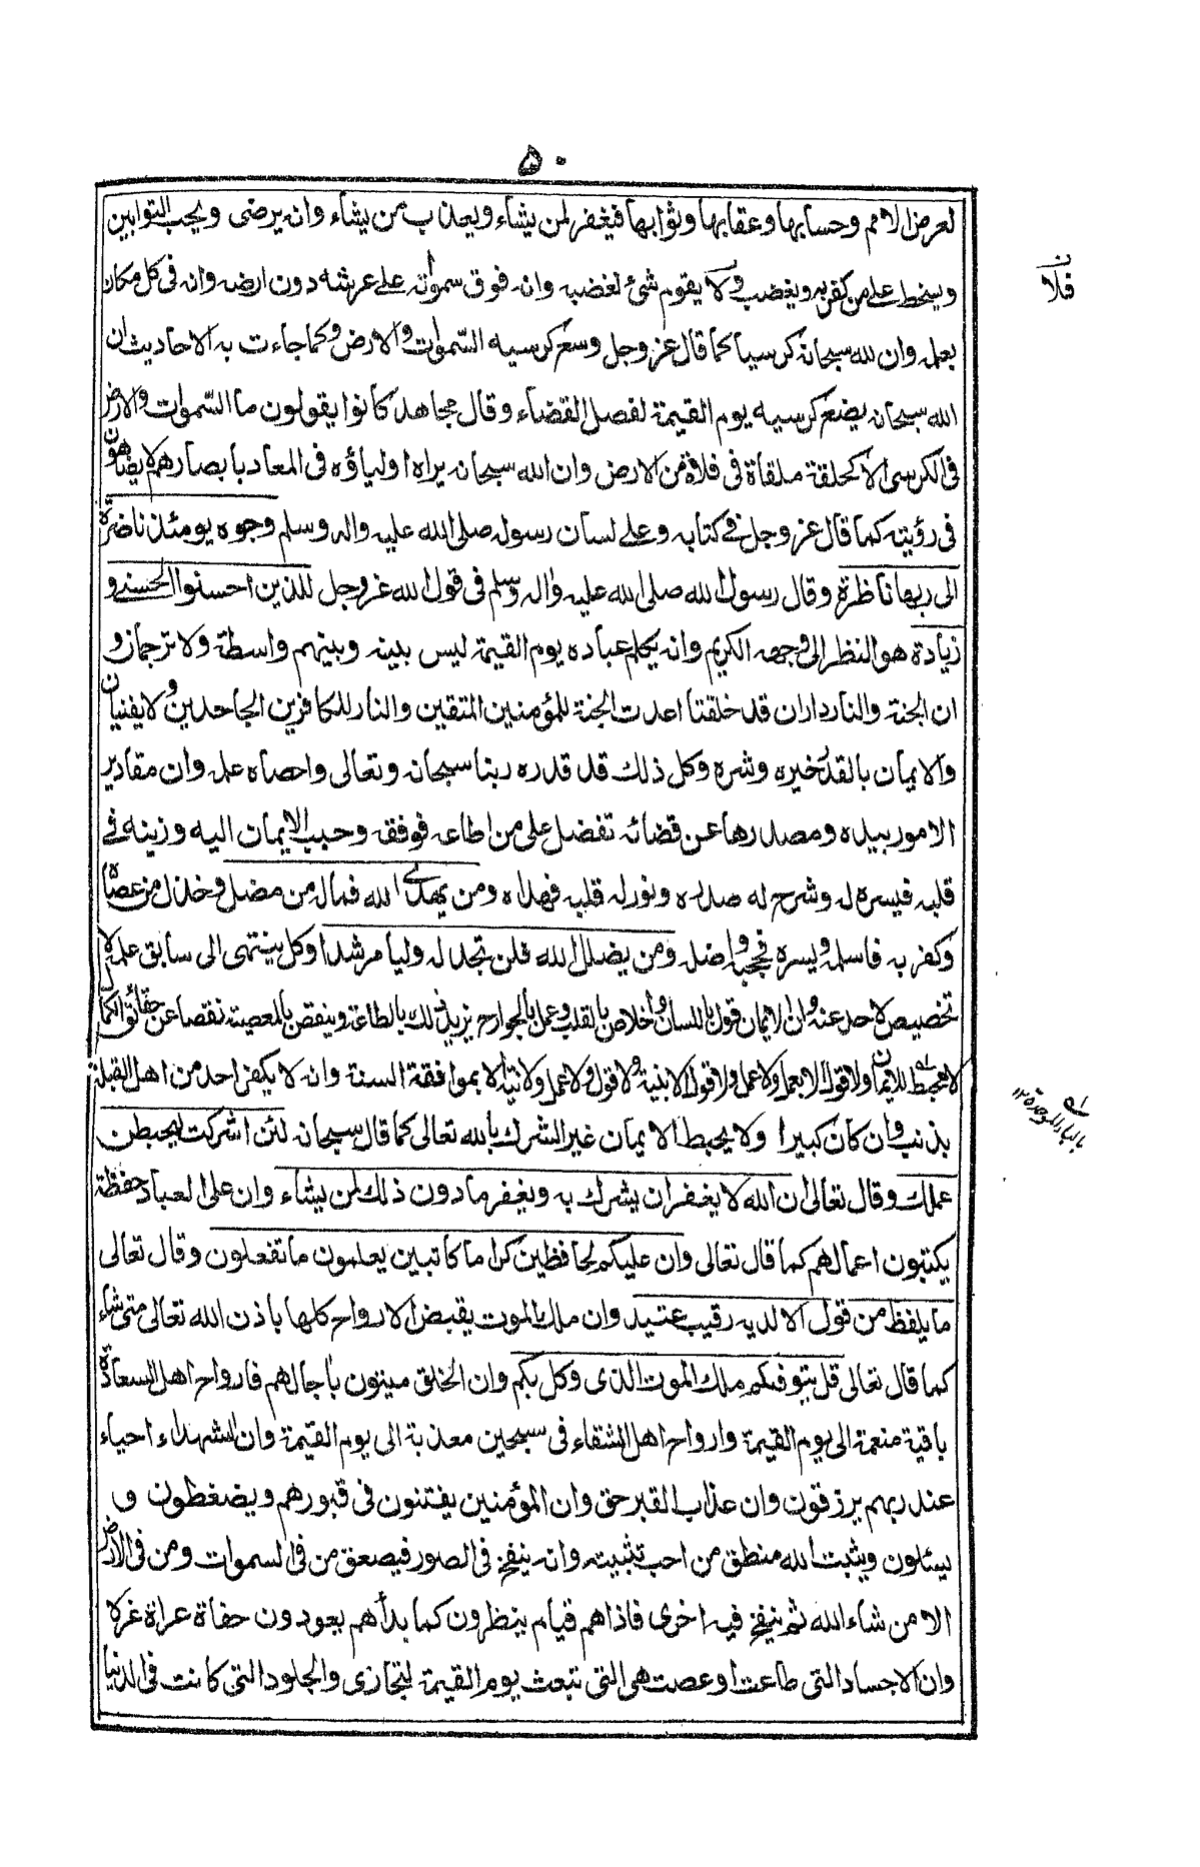 ٥٠
لعرض الامم وحسابها وعقابها وثوابها فيغفر لمن يشاء ويعذب من يشاء وانه يرضى ويحب التوابين
ويسخط على من كفر به ويغضب ولا يقوم شئ لغضبه وانه فوق سمواته على عرشه دون ارضه وانه فى كل مكان
فلا
ن
بعلمه وان لله سبحانه كرسيا كما قال عز وجل وسع كرسيه السموات والارض وكما جاءت به الاحاديث ان
الله سبحانه يضع كرسيه يوم القيمة لفصل القضاء وقال مجاهد كانوا يقولون ما السّموات والارض
فى الكرسى الا كحلقة ملقاة فى فلاة من الارض وان الله سبحانه يراه اولياؤه فى المعاد بابصارهم لا يضاهون
فى رؤيته كما قال عز وجل فى كتابه وعلى لسان رسوله صلى الله عليه واله وسلم وجوه يومئذ ناضرة
الى ربها ناظرة وقال رسول الله صلى الله عليه واله وسلم فى قول الله عز وجل للذين احسنوا الحسنى و
زيادة هو النظر الى وجهه الكريم وانه يكلم عباده يوم القيمة ليس بينه وبينهم واسطة ولا ترجمان و
ان الجنة والنار داران قد خلقتا اعدت الجنة للمؤمنين المتقين والنار للكافرين الجاحدين ولا يفنيان
والايمان بالقدر خيره وشره وكل ذلك قد قدره ربنا سبحانه وتعالى واحصاه علمه وان مقادير
الامور بيده ومصدرها عن قضائه تفضل على من اطاعه فوفقه وحبب الايمان اليه وزينه فى
قلبه فيسره له وشرح له صدره ونور له قلبه فهداه ومن يهدى الله فماله من مضل وخذل من عصاه
وكفر به فاسلمه ويسره فحجبه واضله ومن يضلل الله فلن تجد له وليا مرشدا وكل ينتهى الى سابق علمه لا
تخصيص لاحد عنه وان الايمان قول باللسان واخلاص بالقلب وعمل بالجوارح يزيد ذلك بالطاعة وينقص بالمعصية نقصا عن حقائق الكمال
لا محبط للايمان ولا قول الا بعمل ولا عمل ولا قول الا بنية ولا قول ولا عمل ولا نية الا بموافقة السنة وانه لا يكفر احد من اهل القبلة
اى
بالباء الموحدة ١٢
بذنب وان كان كبيرا ولا يحبط الايمان غير الشرك بالله تعالى كما قال سبحانه لئن اشركت ليحبطن
عملك وقال تعالى ان الله لا يغفر ان يشرك به ويغفر ما دون ذلك لمن يشاء وان على العباد حفظة
يكتبون اعمالهم كما قال تعالى وان عليكم لحافظين كراما كاتبين يعلمون ما تفعلون وقال تعالى
ما يلفظ من قول الا لديه رقيب عتيد وان ملك الموت يقبض الارواح كلها باذن الله تعالى متى شاء
كما قال تعالى قل يتوفىكم ملك الموت الذى وكل بكم وان الخلق ميتون باجالهم فارواح اهل السعادة
باقية منعمة الى يوم القيمة وارواح اهل الشقاء فى سجين معذبة الى يوم القيمة وان الشهداء احياء
عند ربهم يرزقون وان عذاب القبر حق وان المؤمنين يفتنون فى قبورهم ويضغطون و
يسئلون ويثبت الله منطق من احب تثبيته وانه ينفخ فى الصور فيصعق من فى السموات ومن فى الارض
الا من شاء الله ثم ينفخ فيه اخرى فاذا هم قيام ينظرون كما بدأهم يعودون حفاة عراة غرلا
وان الاجساد التى طاعت او عصت هى التى تبعث يوم القيمة لتجازى والجلود التى كانت فى الدنيا